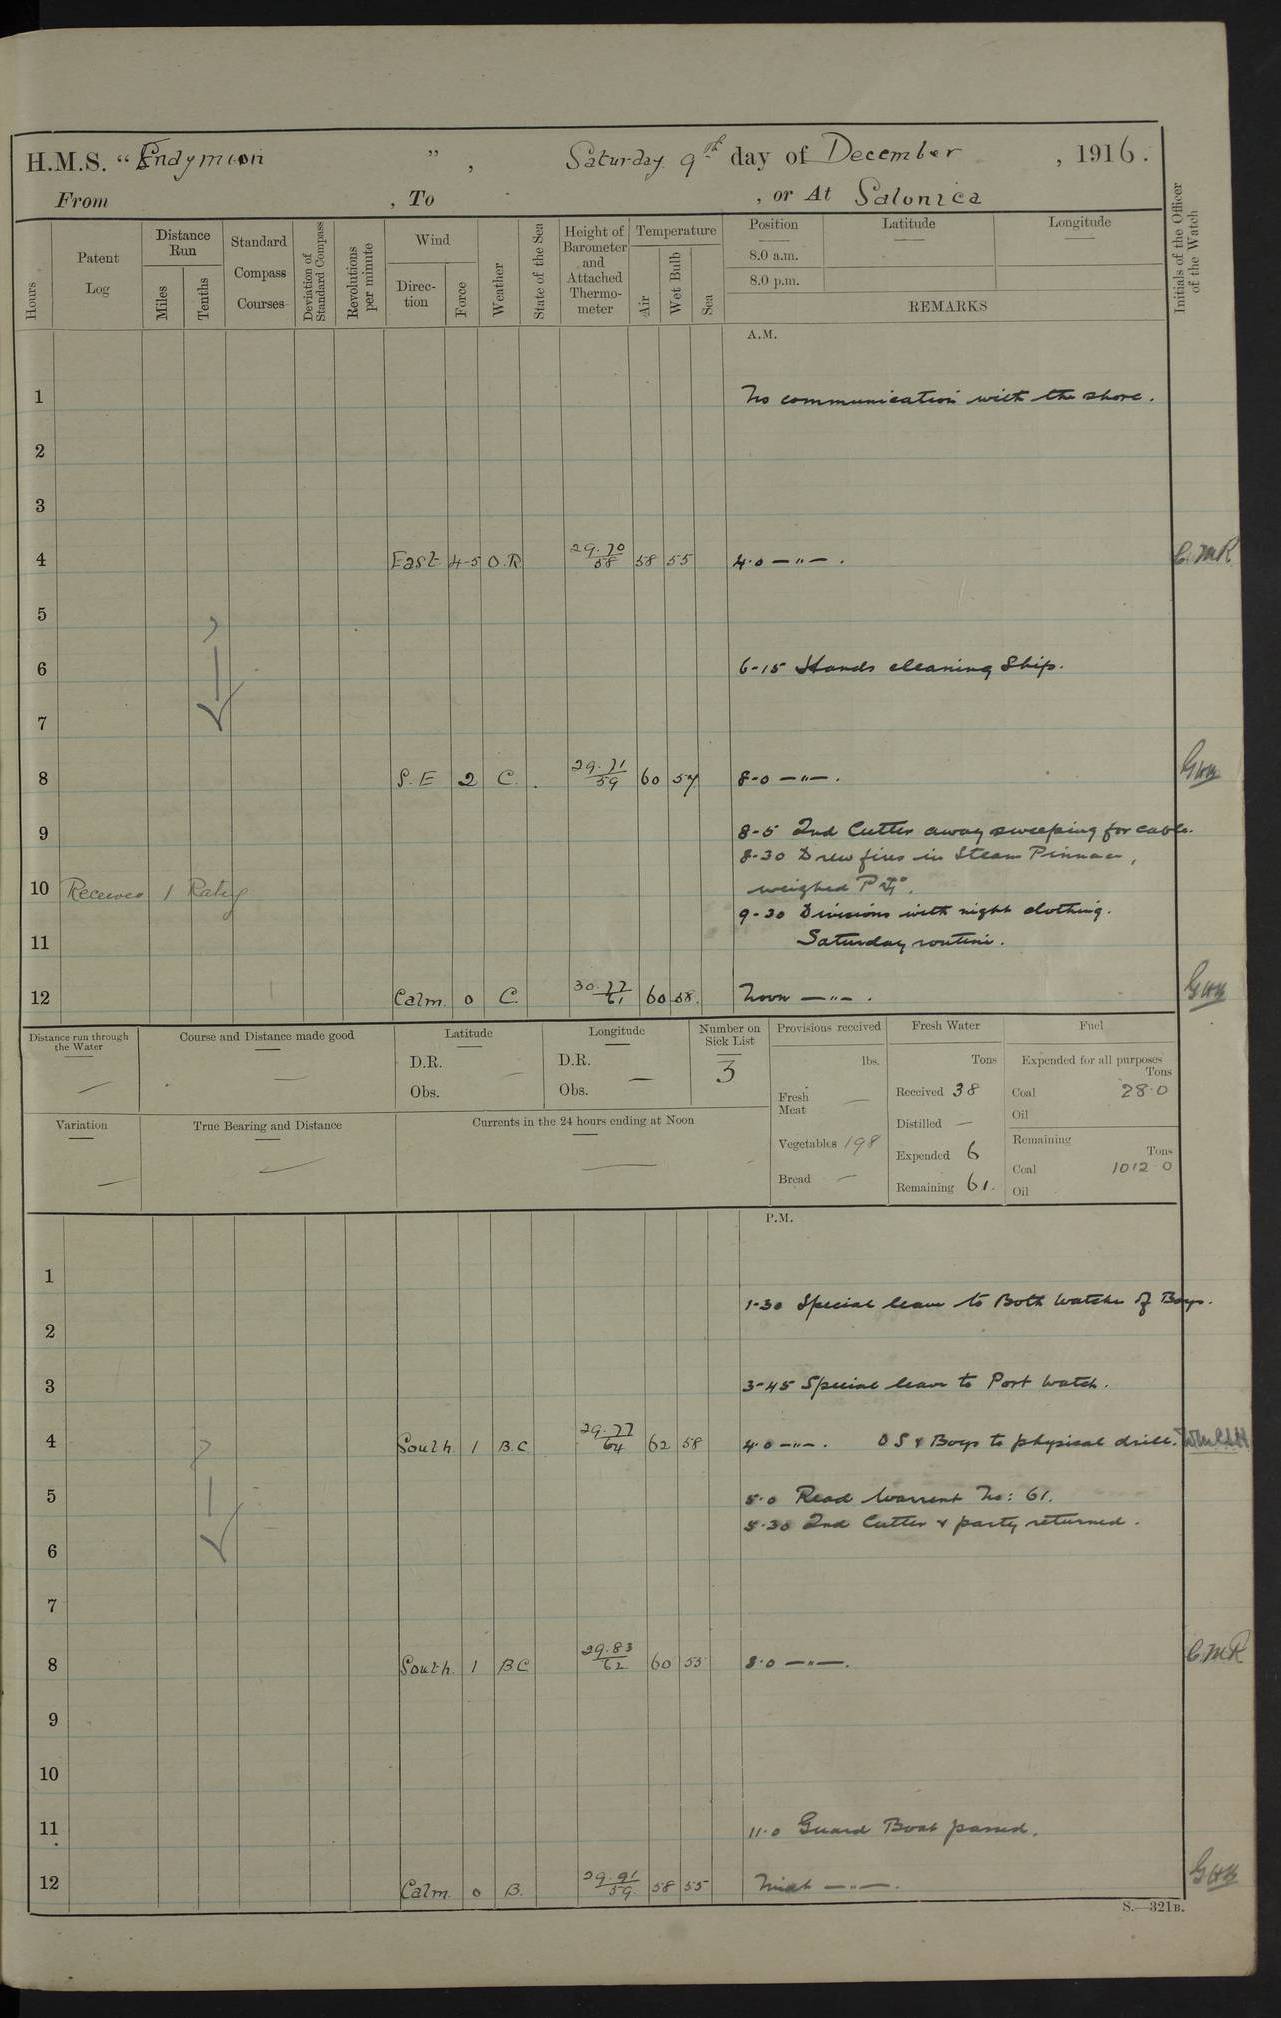 H.M.S. "Endymion", Saturday 9th day of December, 1916.
From , To , or At Salonica
Hours
Patent Log
Distance Run
Miles
Tenths
Standard Compass Courses
Deviation of Standard Compass
Revolutions per minute
Wind
Direction
Force
Weather
State of the Sea
Height of Barometer and Attached Thermometer
Temperature
Air
Wet Bulb
Sea
Position
Latitude
Longitude
8.0 a.m.
8.0 p.m.
REMARKS
Initials of the Officer of the Watch
A.M.
1 No communication with the shore.
2
3
4 East 4-5 O.R 29.70/58 58 55 4.0 —"— . C.MR
5
6 6-15 Hands cleaning Ship.
7
8 S.E 2 C. 29.71/59 60 57 8-0 —"— .
9 8-5 2nd Cutter away sweeping for cable.
8-30 Drew fires in Steam Pinnace,
10 Received 1 Rating weighed
9-30 Divisions with night clothing.
11 Saturday routine.
12 Calm. 0 C. 30.77/61 60 58. Noon —"— .
Distance run through the Water
Course and Distance made good
Latitude
D.R.
Obs.
Longitude
D.R.
Obs.
Number on Sick List
3
Provisions received
lbs.
Fresh Meat —
Vegetables 198
Bread —
Fresh Water
Tons
Received 38
Distilled —
Expended 6
Remaining 61.
Fuel
Expended for all purposes
Tons
Coal 28.0
Oil
Remaining
Tons
Coal 1012 0
Oil
Variation
True Bearing and Distance
Currents in the 24 hours ending at Noon
P.M.
1
1-30 Special leave to Both Watches of Boys.
2
3 3-45 Special leave to Port Watch.
4 South 1 B.C. 29.77/64 62 58 4.0 —"— . O S & Boys to physical drill.
5 5.0 Read Warrent No: 61.
5.30 2nd Cutter & party returned.
6
7
8 South. 1 BC 29.83/62 60 55 8.0 —"—. C.MR
9
10
11 11.0 Guard Boat passed.
12 Calm. 0 B. 29.91/59 58 55 Midt —"—.
S.—321B.